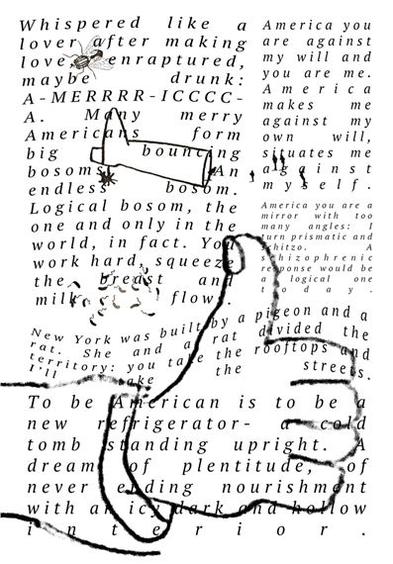 Whispered like a
lover after making
love, enraptured,
maybe drunk:
A-MERRRR-ICCCC-
A. Many merry
Americans form
big bouncing
bosoms. An
endless bosom.
Logical bosom, the
one and only in the
world, in fact. You
work hard, squeeze
the breast and
milk flows.
America you
are against
my will and
you are me.
America
makes me
against my
own will,
situates me
against
myself.
America you are a
mirror with too
many angles: I
turn prismatic and
schitzo. A
schizophrenic
response would be
a logical one
today.
New York was built by a pigeon and a
rat. She and a rat divided the
territory: you take the rooftops and
I'll take the streets.
To be American is to be a
new refrigerator- a cold
tomb standing upright. A
dream of plentitude, of
never ending nourishment
with an icy dark and hollow
interior.